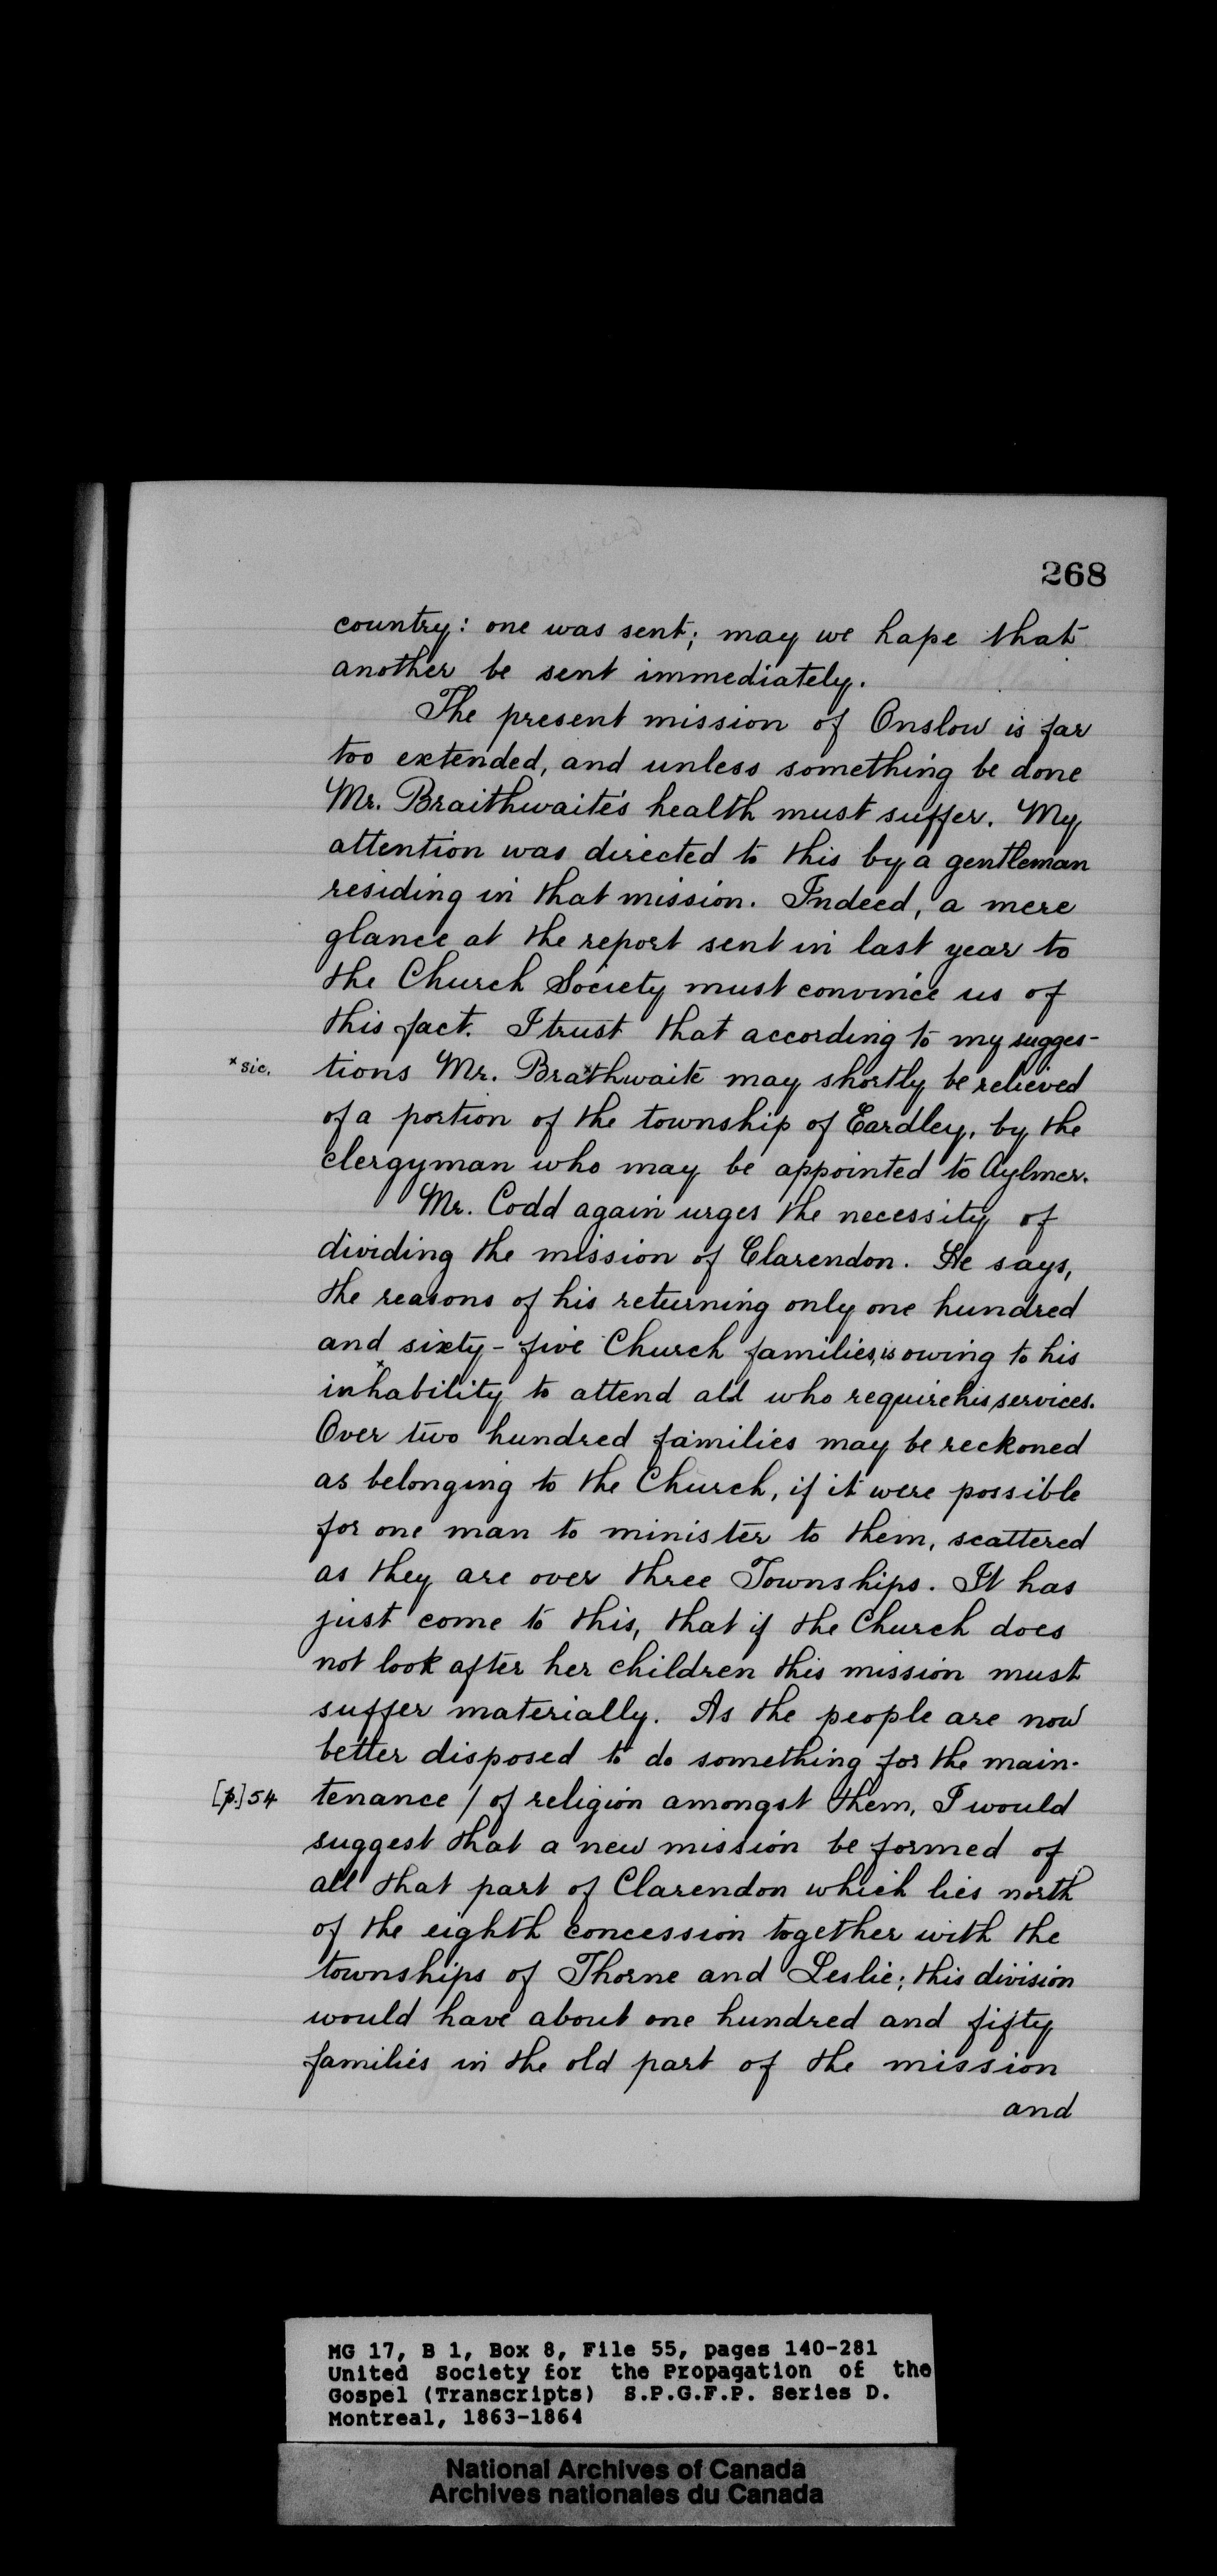 268
country: one was sent; may we hope that
another be sent immediately.
The present mission of Onslow is far
too extended, and unless something be done
Mr. Braithwaite's health must suffer. My
attention was directed to this by a gentleman
residing in that mission. Indeed, a mere
glance at the report sent in last year to
the Church Society must convince us of
this fact. I trust that according to my sugges-
*sic. tions Mr. Brathwaite may shortly be relieved
of a portion of the township of Eardley, by the
clergyman who may be appointed to Aylmer.
Mr. Codd again urges the necessity of
dividing the mission of Clarendon. He says,
the reasons of his returning only one hundred
and sixty-five Church families, is owing to his
inhability to attend all who require his services.
Over two hundred families may be reckoned
as belonging to the Church, if it were possible
for one man to minister to them, scattered
as they are over three Townships. It has
just come to this, that if the Church does
not look after her children this mission must
suffer materially. As the people are now
better disposed to do something for the main-
[p.] 54 tenance / of religion amongst them, I would
suggest that a new mission be formed of
all that part of Clarendon which lies north
of the eighth concession together with the
townships of Thorne and Leslie; this division
would have about one hundred and fifty
families in the old part of the mission
and
MG 17, B 1, Box 8, File 55, pages 140-281
United Society for the Propagation of the
Gospel (Transcripts) S.P.G.F.P. Series D.
Montreal, 1863-1864
National Archives of Canada
Archives nationales du Canada